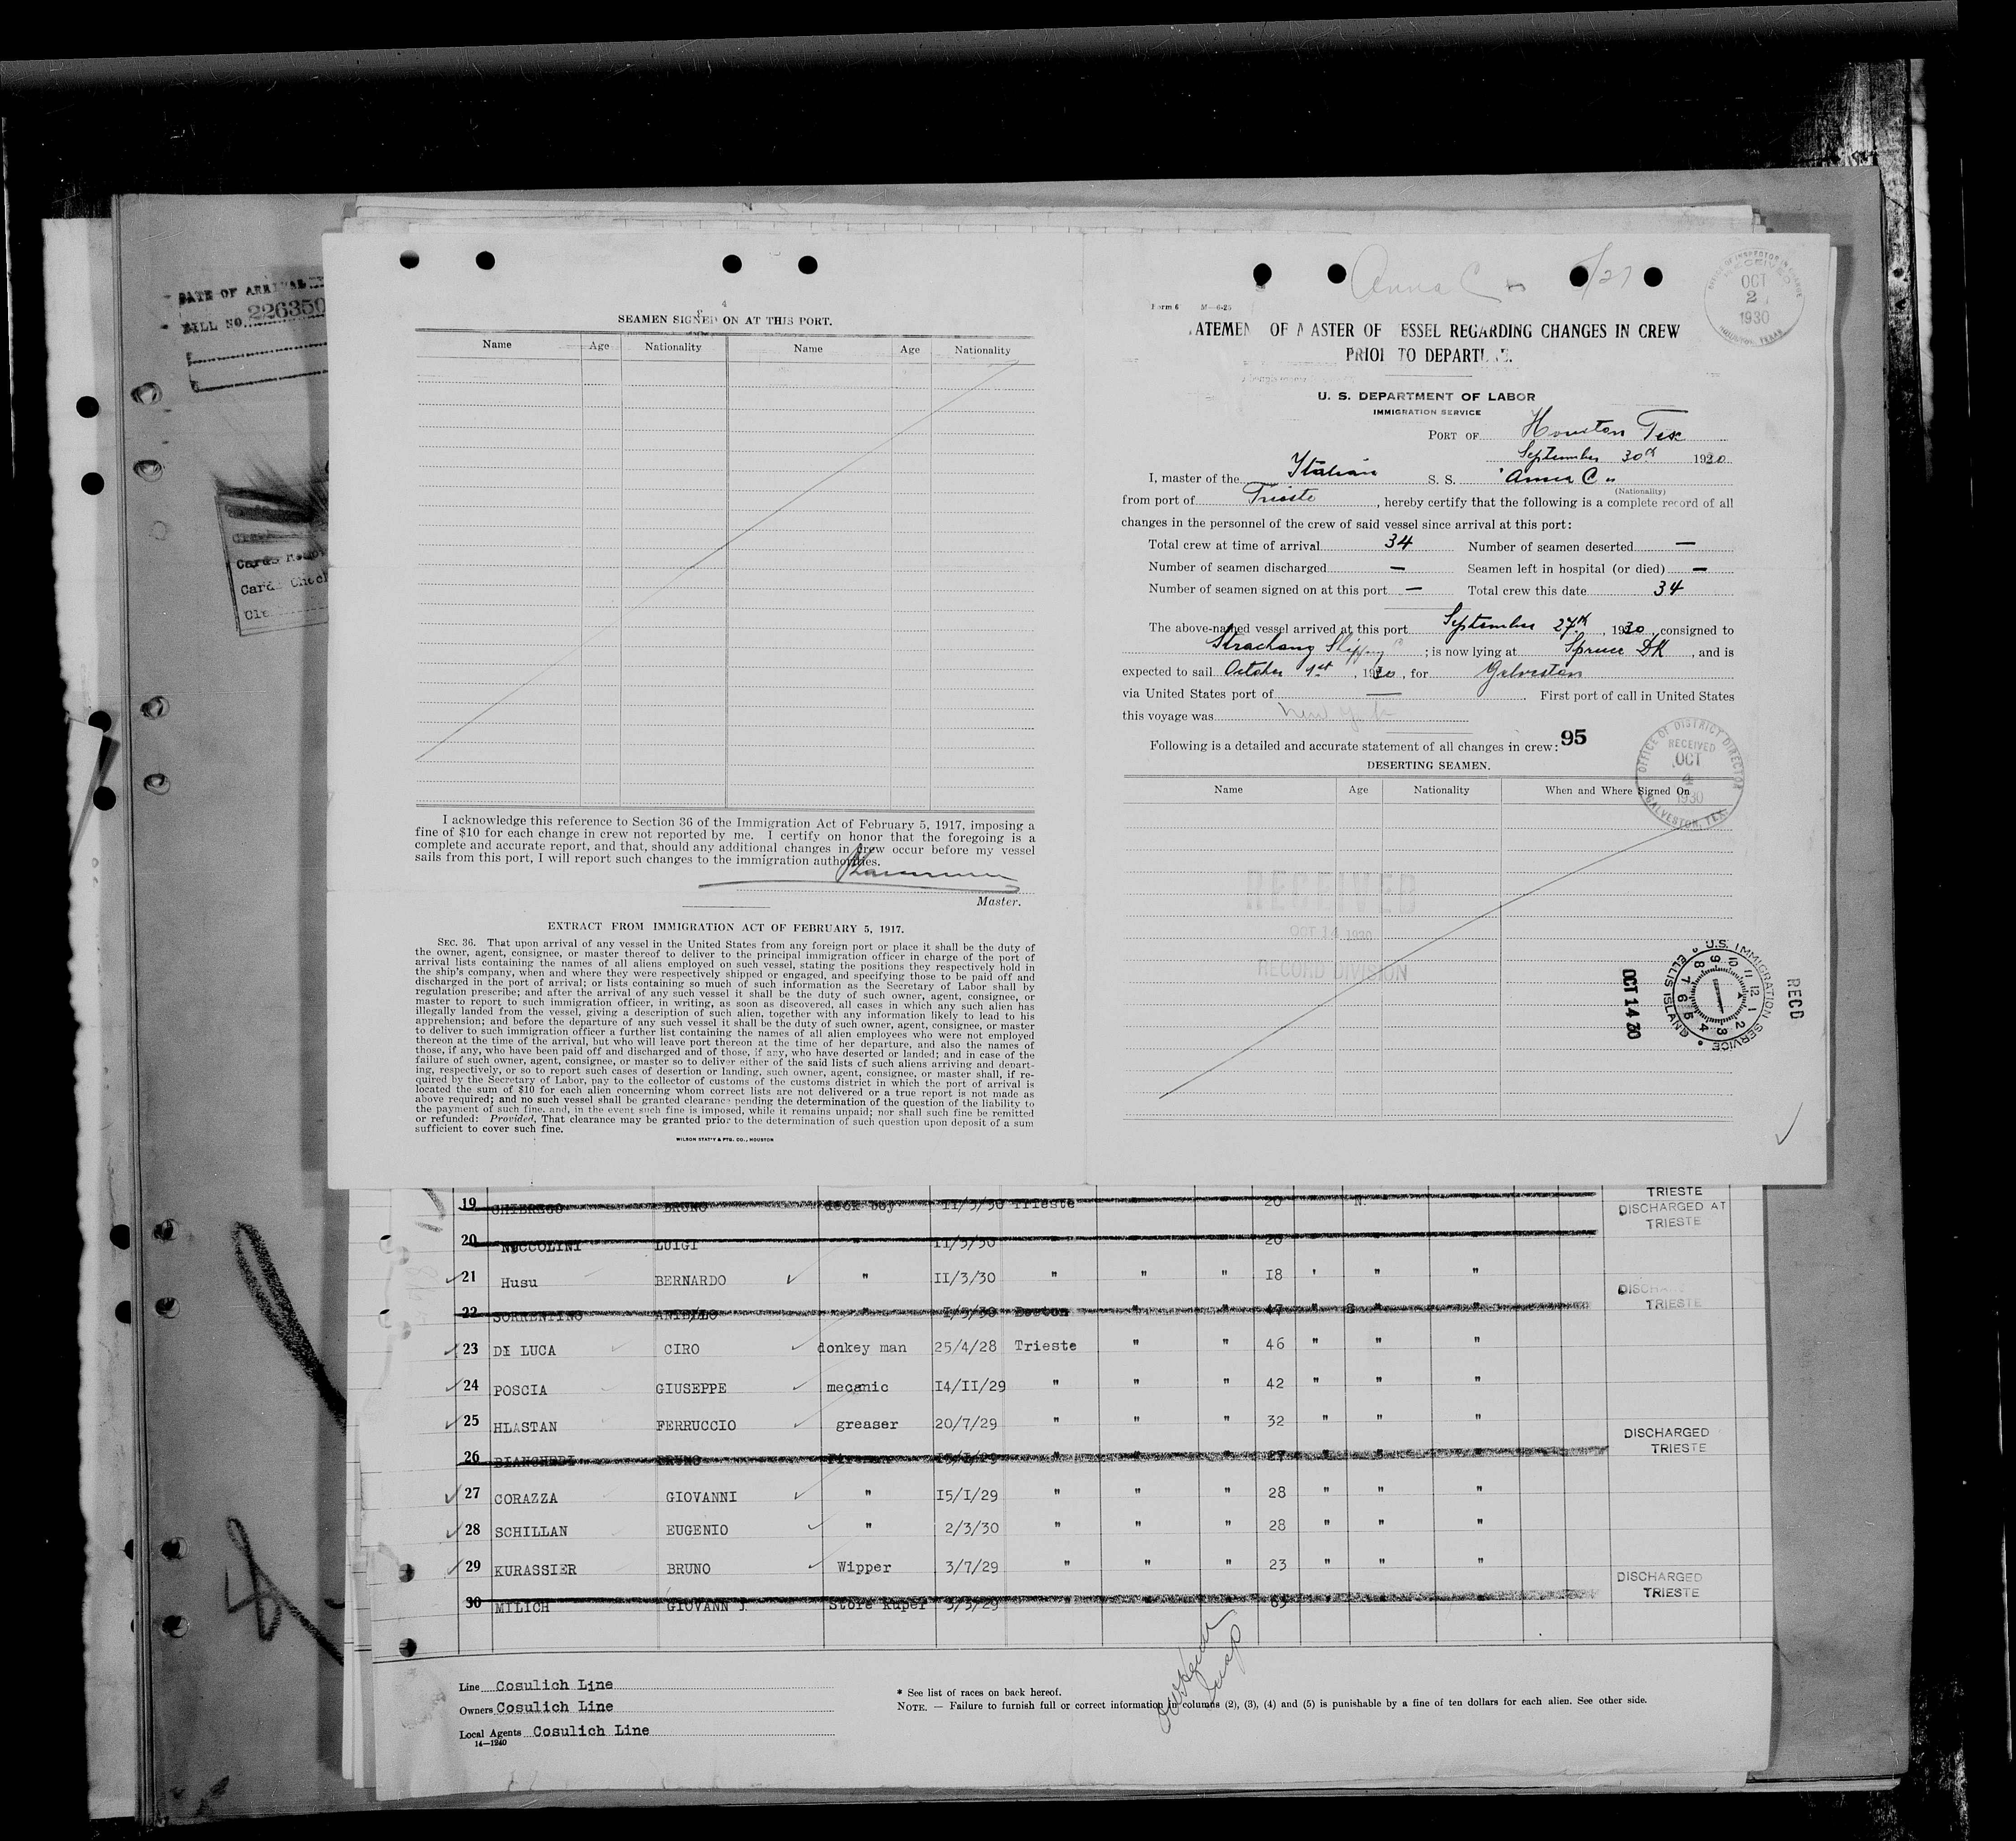 DATE OF ARRIVAL
BILL NO. 226350
SEAMEN SIGNED ON AT THIS PORT.
Name Age Nationality Name Age Nationality
I acknowledge this reference to Section 36 of the Immigration Act of February 5, 1917, imposing a
fine of $10 for each change in crew not reported by me. I certify on honor that the foregoing is a
complete and accurate report, and that, should any additional changes in crew occur before my vessel
sails from this port, I will report such changes to the immigration authorities.
Master.
EXTRACT FROM IMMIGRATION ACT OF FEBRUARY 5, 1917.
SEC. 36. That upon arrival of any vessel in the United States from any foreign port or place it shall be the duty of
the owner, agent, consignee, or master thereof to deliver to the principal immigration officer in charge of the port of
arrival lists containing the names of all aliens employed on such vessel, stating the positions they respectively hold in
the ship's company, when and where they were respectively shipped or engaged, and specifying those to be paid off and
discharged in the port of arrival; or lists containing so much of such information as the Secretary of Labor shall by
regulation prescribe; and after the arrival of any such vessel it shall be the duty of such owner, agent, consignee, or
master to report to such immigration officer, in writing, as soon as discovered, all cases in which any such alien has
illegally landed from the vessel, giving a description of such alien, together with any information likely to lead to his
apprehension; and before the departure of any such vessel it shall be the duty of such owner, agent, consignee, or master
to deliver to such immigration officer a further list containing the names of all alien employees who were not employed
thereon at the time of the arrival, but who will leave port thereon at the time of her departure, and also the names of
those, if any, who have been paid off and discharged and of those, if any, who have deserted or landed; and in case of the
failure of such owner, agent, consignee, or master so to deliver either of the said lists of such aliens arriving and depart-
ing, respectively, or so to report such cases of desertion or landing, such owner, agent, consignee, or master shall, if re-
quired by the Secretary of Labor, pay to the collector of customs of the customs district in which the port of arrival is
located the sum of $10 for each alien concerning whom correct lists are not delivered or a true report is not made as
above required; and no such vessel shall be granted clearance pending the determination of the question of the liability to
the payment of such fine, and, in the event such fine is imposed, while it remains unpaid; nor shall such fine be remitted
or refunded: Provided, That clearance may be granted prior to the determination of such question upon deposit of a sum
sufficient to cover such fine.
WILSON STAT'Y & PTG. CO., HOUSTON
Anna C 9/27
OFFICE OF INSPECTOR IN CHARGE
RECEIVED
OCT
2
1930
HOUSTON, TEXAS
Form 6
ATEMEN OF MASTER OF ESSEL REGARDING CHANGES IN CREW
PRIOR TO DEPARTURE.
U. S. DEPARTMENT OF LABOR
IMMIGRATION SERVICE
PORT OF Houston Tex
September 30th 1930
I, master of the Italian S. S. "Anna C"
(Nationality)
from port of Trieste, hereby certify that the following is a complete record of all
changes in the personnel of the crew of said vessel since arrival at this port:
Total crew at time of arrival 34 Number of seamen deserted —
Number of seamen discharged — Seamen left in hospital (or died) —
Number of seamen signed on at this port — Total crew this date 34
The above-named vessel arrived at this port September 27th, 1930, consigned to
Strachang Shipping Co; is now lying at Spruce DK, and is
expected to sail October 1st, 1930, for Galveston
via United States port of — First port of call in United States
this voyage was New York
Following is a detailed and accurate statement of all changes in crew: 95
DESERTING SEAMEN.
Name Age Nationality When and Where Signed On
OFFICE OF DISTRICT DIRECTOR
RECEIVED
OCT
4
1930
GALVESTON, TEX.
RECEIVED
OCT 14 1930
RECORD DIVISION
U.S. IMMIGRATION SERVICE
ELLIS ISLAND
OCT 14 30
RECD
TRIESTE
19 GHIEREGO BRUNO deck boy 11/3/30 Trieste " " 20 N. DISCHARGED AT TRIESTE
20 NOCCOLINI LUIGI " 11/3/30 20
21 Husu BERNARDO " 11/3/30 " " " 18 ' " "
22 SORRENTINO ANIELLO " 1/5/30 Boston " " 47 " " " TRIESTE
23 DI LUCA CIRO donkey man 25/4/28 Trieste " " 46 " " "
24 POSCIA GIUSEPPE mecanic 14/11/29 " " " 42 " " "
25 HLASTAN FERRUCCIO greaser 20/7/29 " " " 32 " " "
26 BIANCHEDI BRUNO Fireman 15/1/29 " " " 27 " " " DISCHARGED TRIESTE
27 CORAZZA GIOVANNI " 15/1/29 " " " 28 " " "
28 SCHILLAN EUGENIO " 2/3/30 " " " 28 " " "
29 KURASSIER BRUNO Wipper 3/7/29 " " " 23 " " "
30 MILICH GIOVANN J. Store Kuper 3/3/29 DISCHARGED TRIESTE
Line Cosulich Line
Owners Cosulich Line
Local Agents Cosulich Line
14—1240
* See list of races on back hereof.
NOTE. — Failure to furnish full or correct information in columns (2), (3), (4) and (5) is punishable by a fine of ten dollars for each alien. See other side.